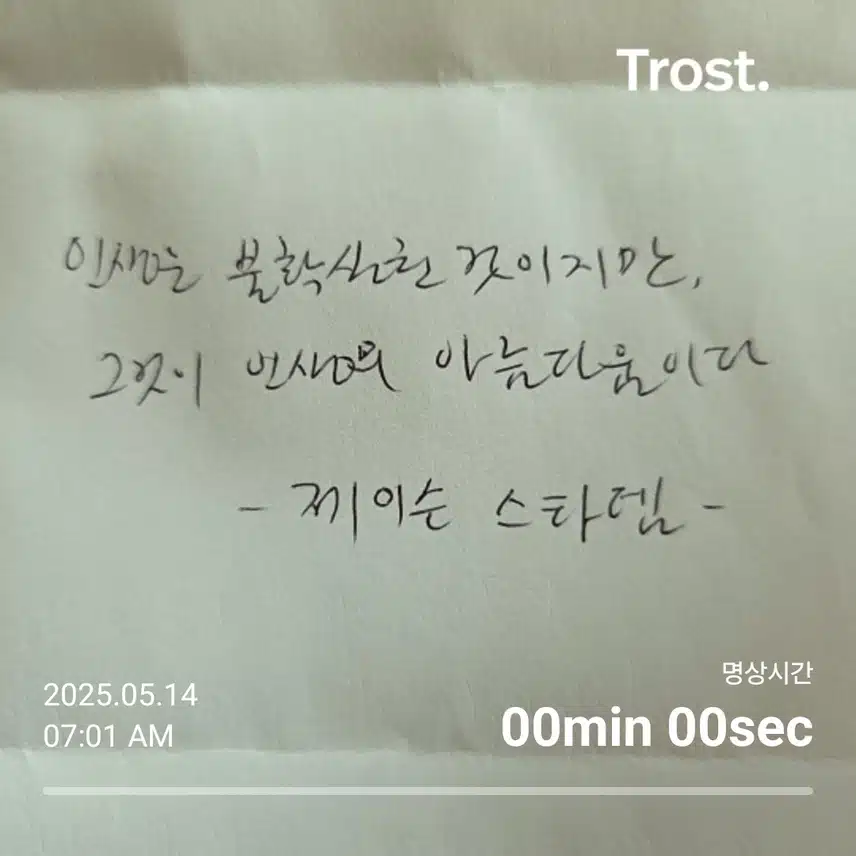 Trost.
인생은 불확실한 것이지만,
그것이 인생의 아름다움이다
- 제이슨 스타뎀 -
명상시간
2025.05.14
00min 00sec
07:01 AM